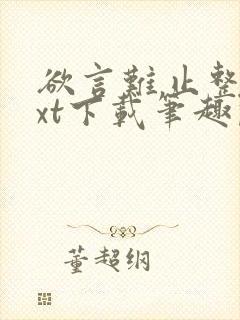 欲言難止整
xt下載筆趣
董超纲